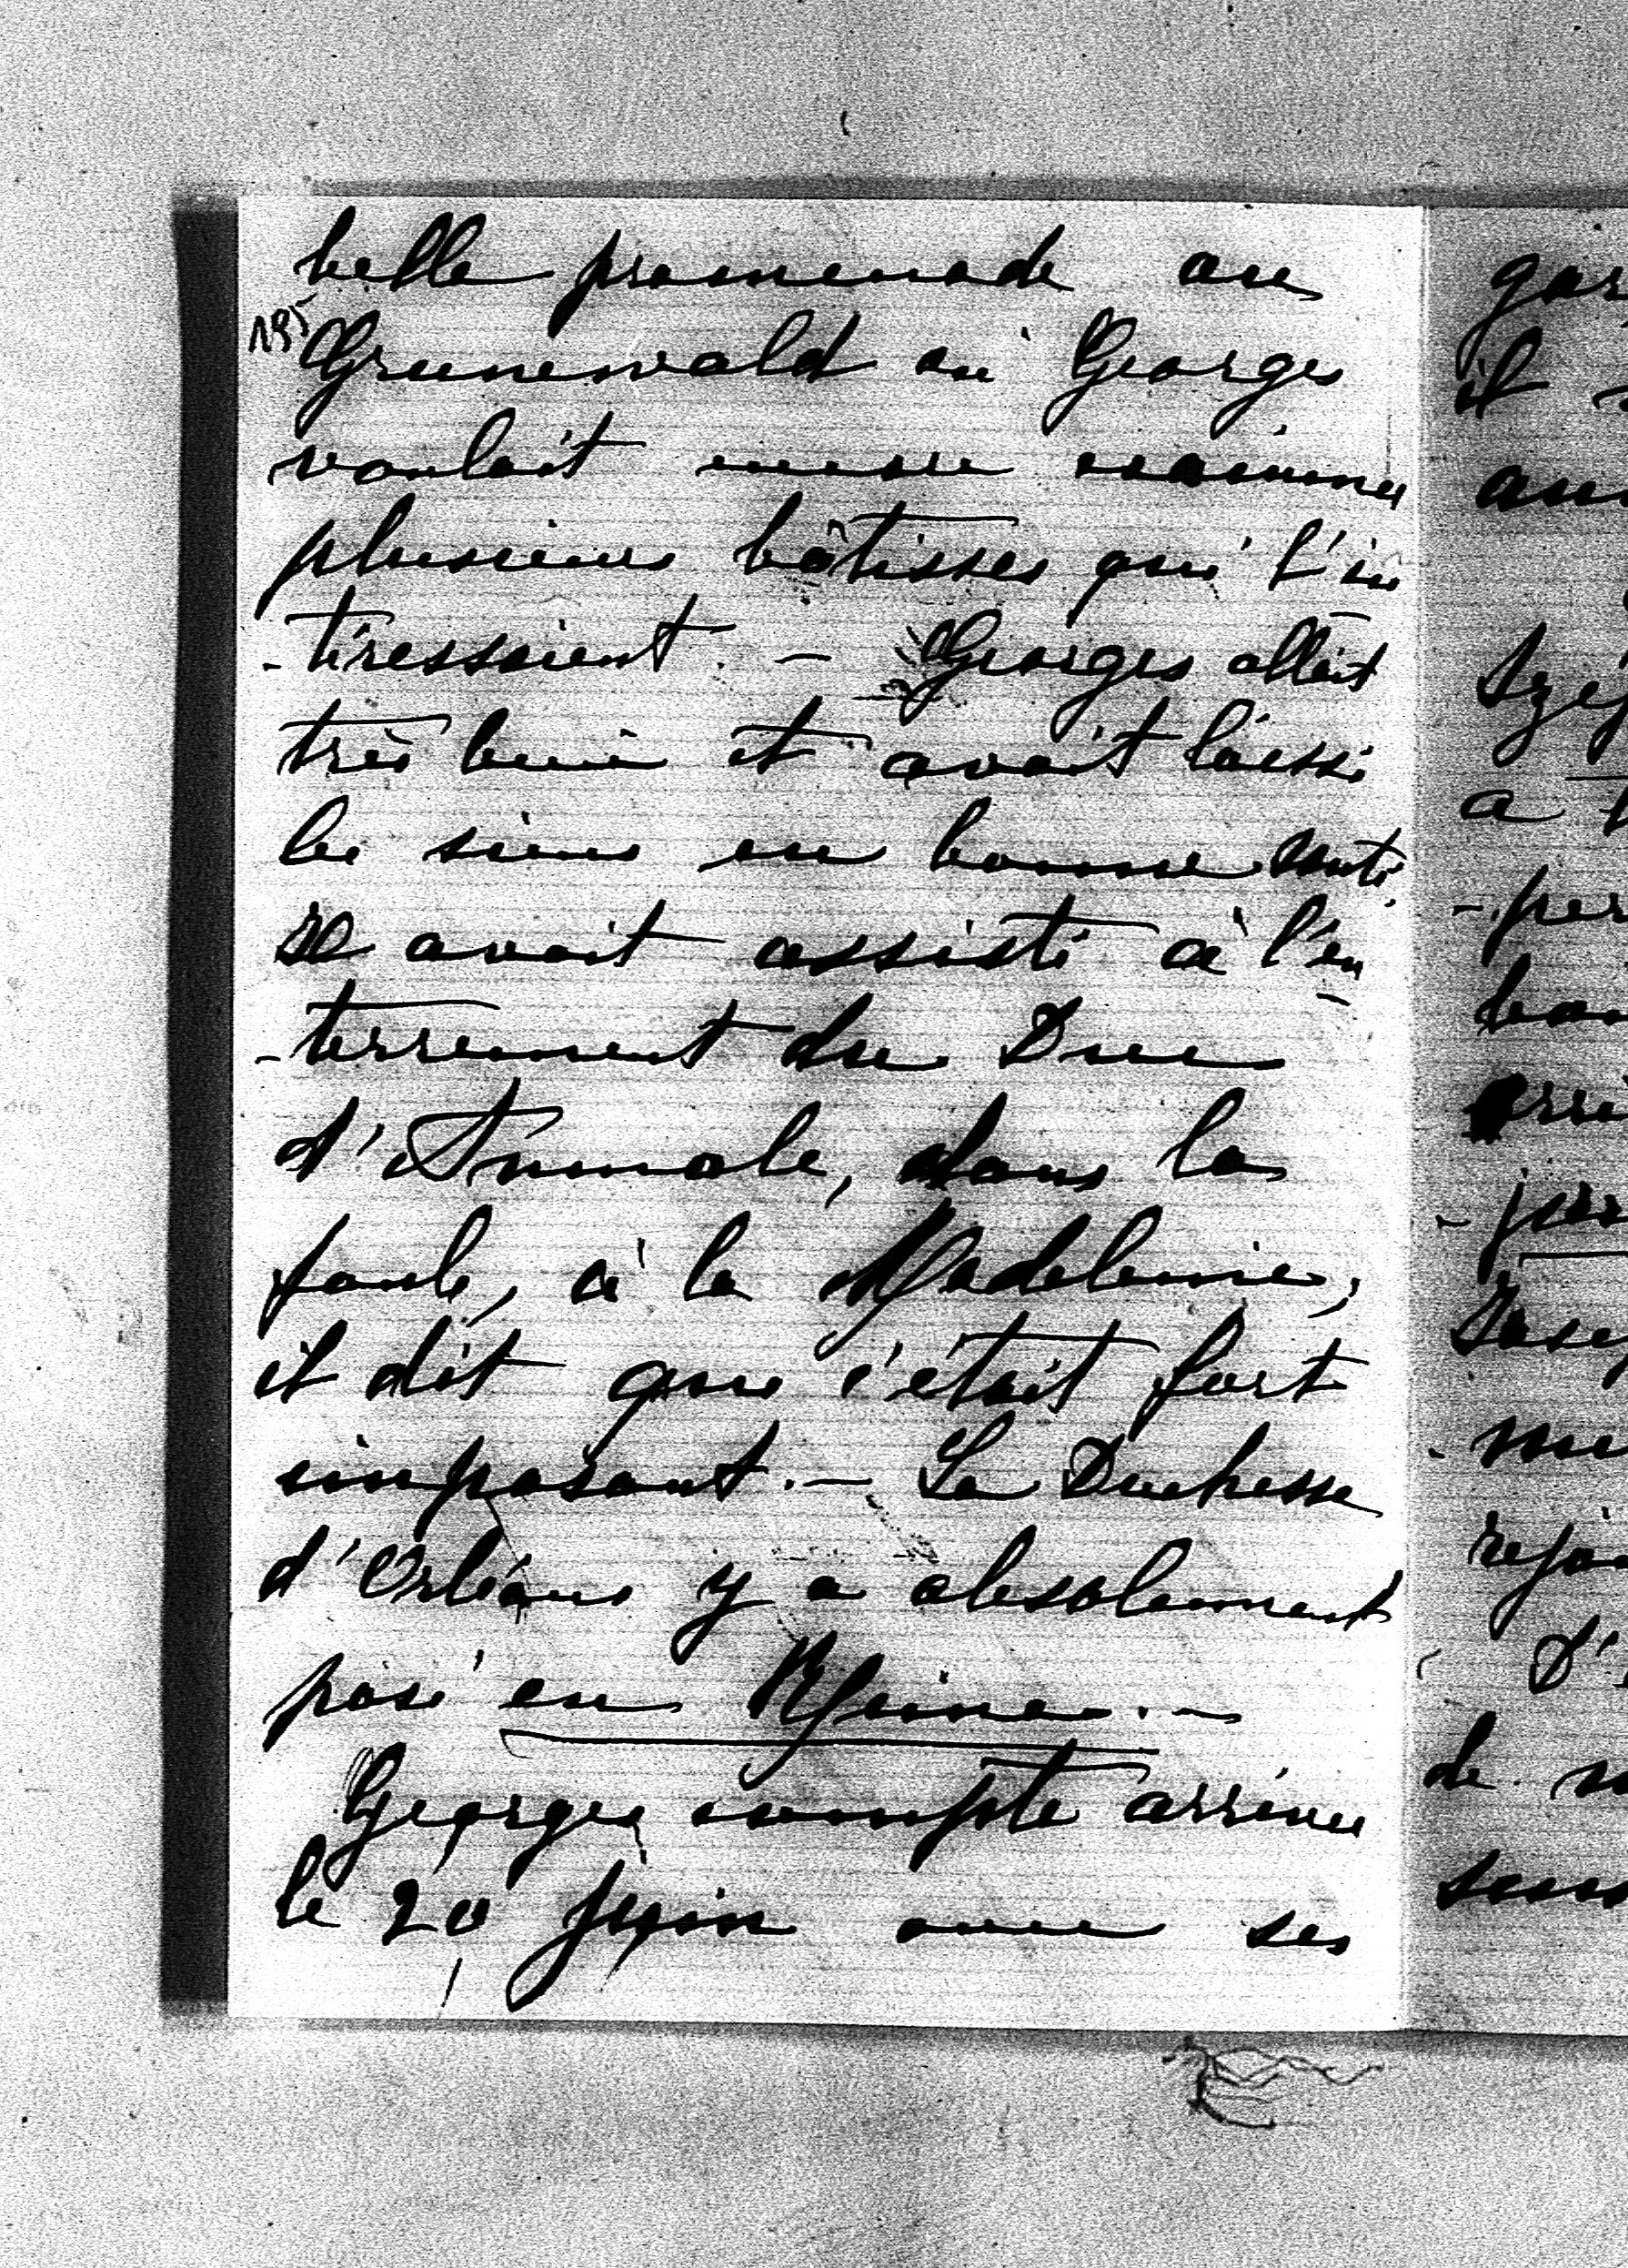 belle promenade au
185
Grunewald où Georges
voulait encore examiner
plusieurs bâtisses qui l'in
-téressaient. — Georges allait
très bien et avait laissé
les siens en bonne santé
Il avait assisté à l'en
-terrement du Duc
d'Aumale, dans la
foule, à la Madeleine,
il dit que c'était fort
imposant. — La Duchesse
d'Orléans y a absolument
posé en Reine. —
Georges compte arriver
le 20 Juin avec ses